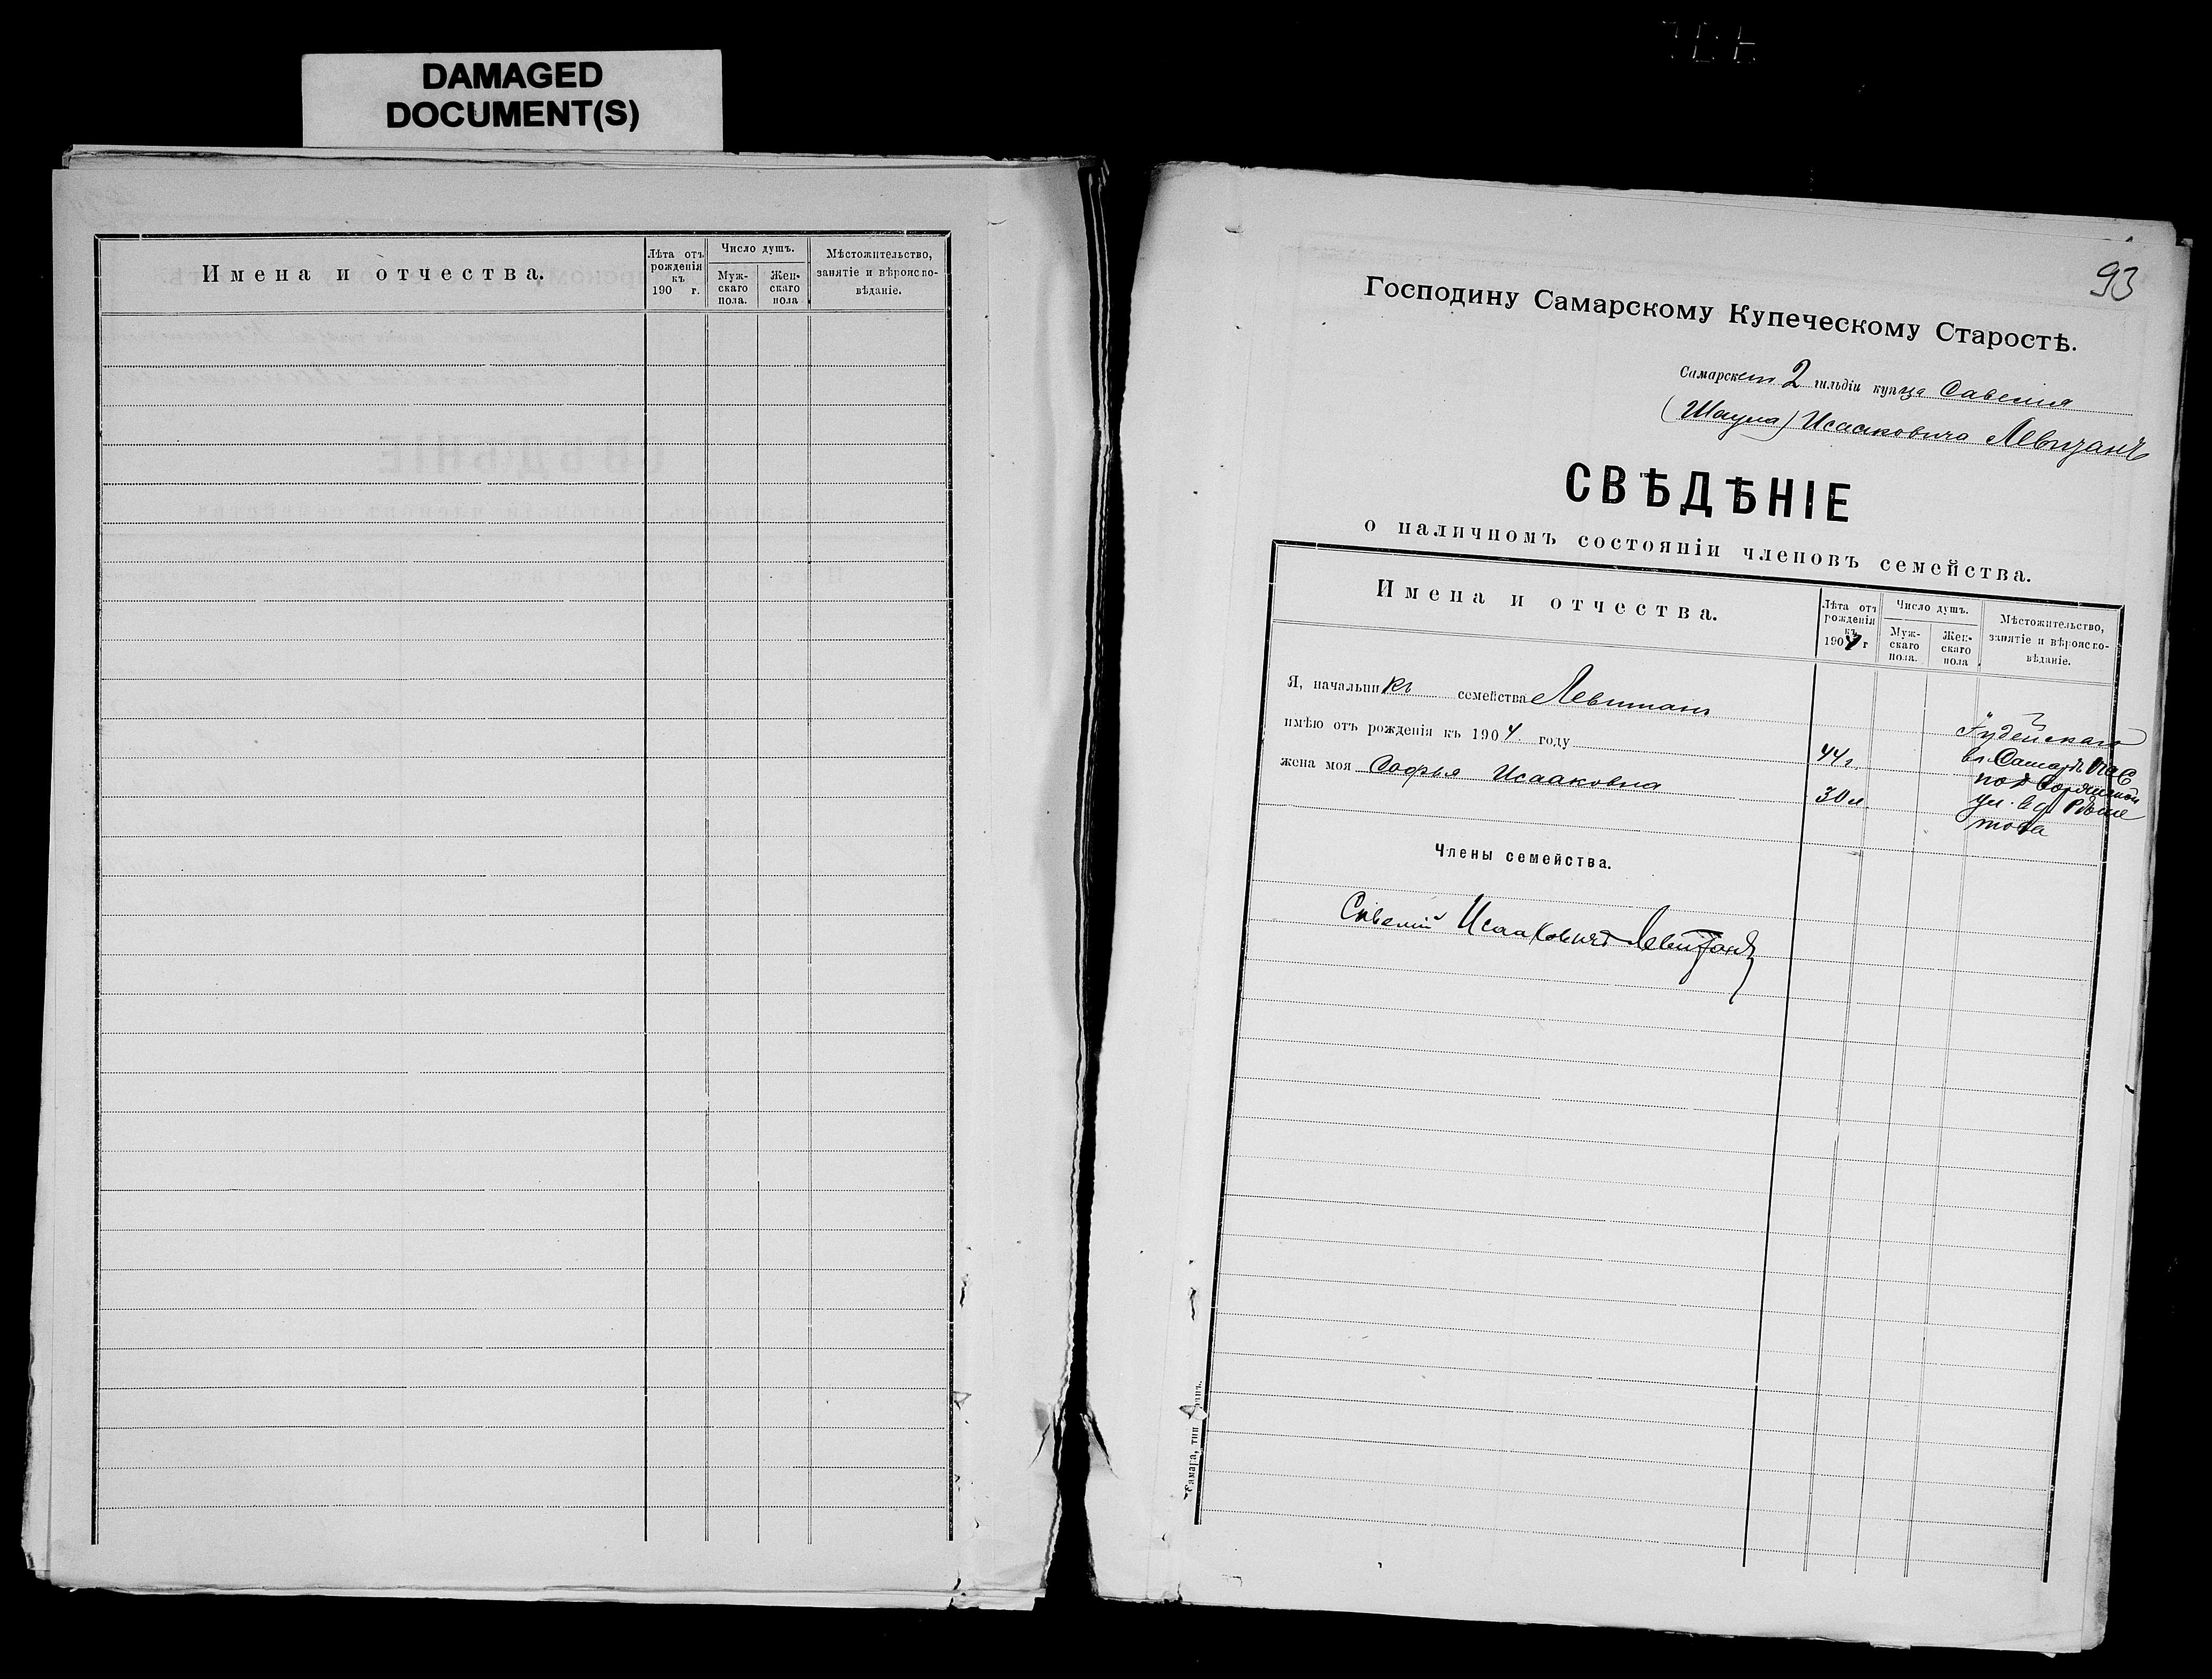 DAMAGED
DOCUMENT(S)
Имена и отчества.
Лѣта отъ рожденія къ 190 г.
Число душъ.
Муж-
скаго
пола.
Жен-
скаго
пола
Мѣстожительство,
занятіе и вѣроиспо-
вѣданіе.
93
Господину Самарскому Купеческому Старостѣ.
Самарск 2 гильдіи купца Савелія
(Шаула) Исааковича Левитанъ
СВѢДѢНІЕ
о наличномъ состояніи членовъ семейства.
Имена и отчества.
Лѣта отъ
рожденія
къ
1904 г
Число душъ.
Муж-
скаго
пола.
Жен-
скаго
пола
Мѣстожительство,
занятіе и вѣроиспо-
вѣданіе.
Я, начальникъ семейства Левитанъ
имѣю отъ рожденія къ 1904 году 44 г.
жена моя Софья Исааковна 30 л.
Іудейскаго
въ Самарѣ
по
ул. в д. Рѣше
това
Члены семейства.
Савелій Исааковичъ Левитанъ
Самара, тип